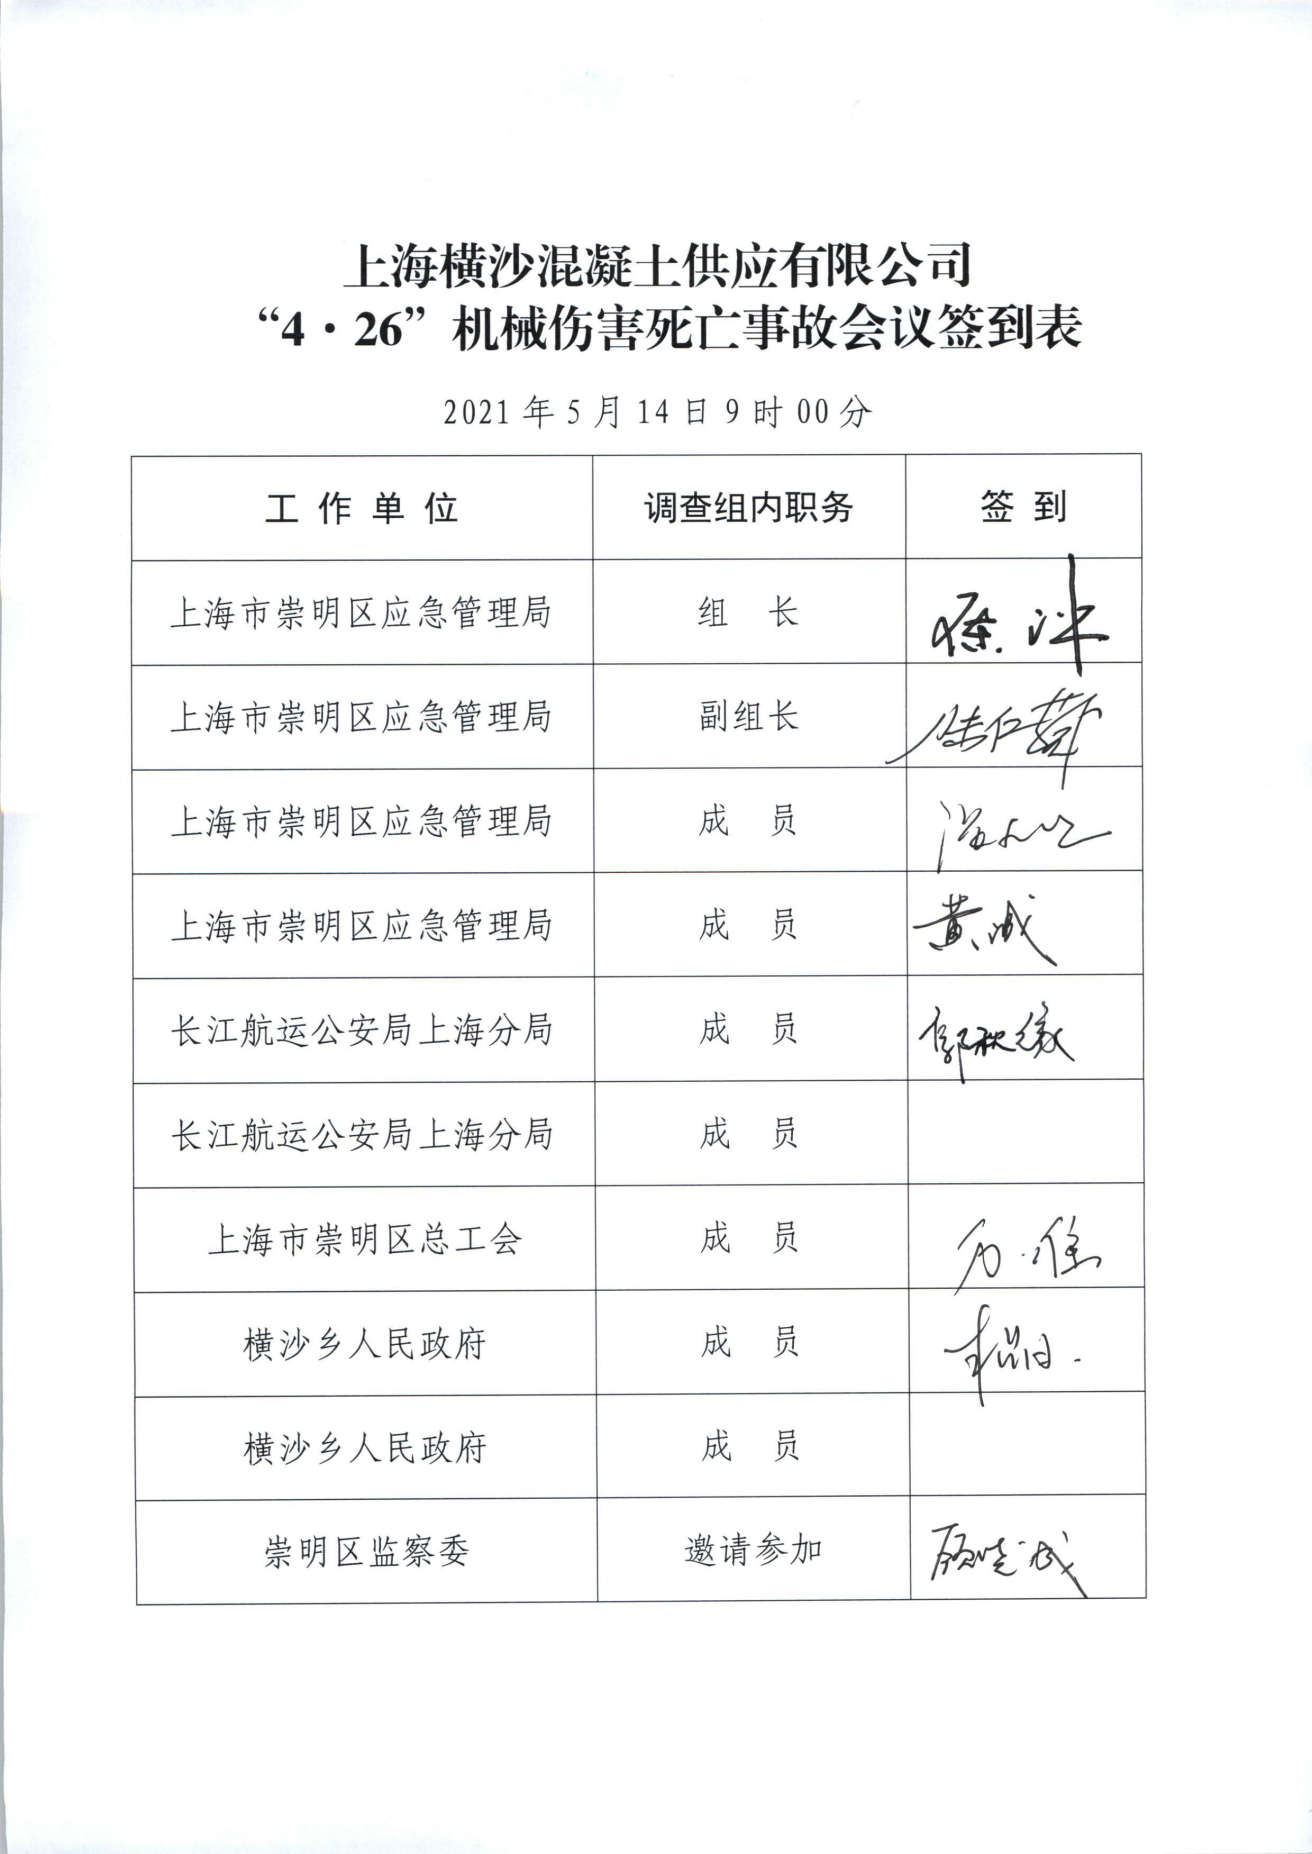 上海横沙混凝土供应有限公司
“4·26”机械伤害死亡事故会议签到表
2021年5月14日9时00分
工作单位 调查组内职务 签到
上海市崇明区应急管理局 组长
上海市崇明区应急管理局 副组长
上海市崇明区应急管理局 成员
上海市崇明区应急管理局 成员 黄诚
长江航运公安局上海分局 成员 郭秋缘
长江航运公安局上海分局 成员
上海市崇明区总工会 成员
横沙乡人民政府 成员
横沙乡人民政府 成员
崇明区监察委 邀请参加